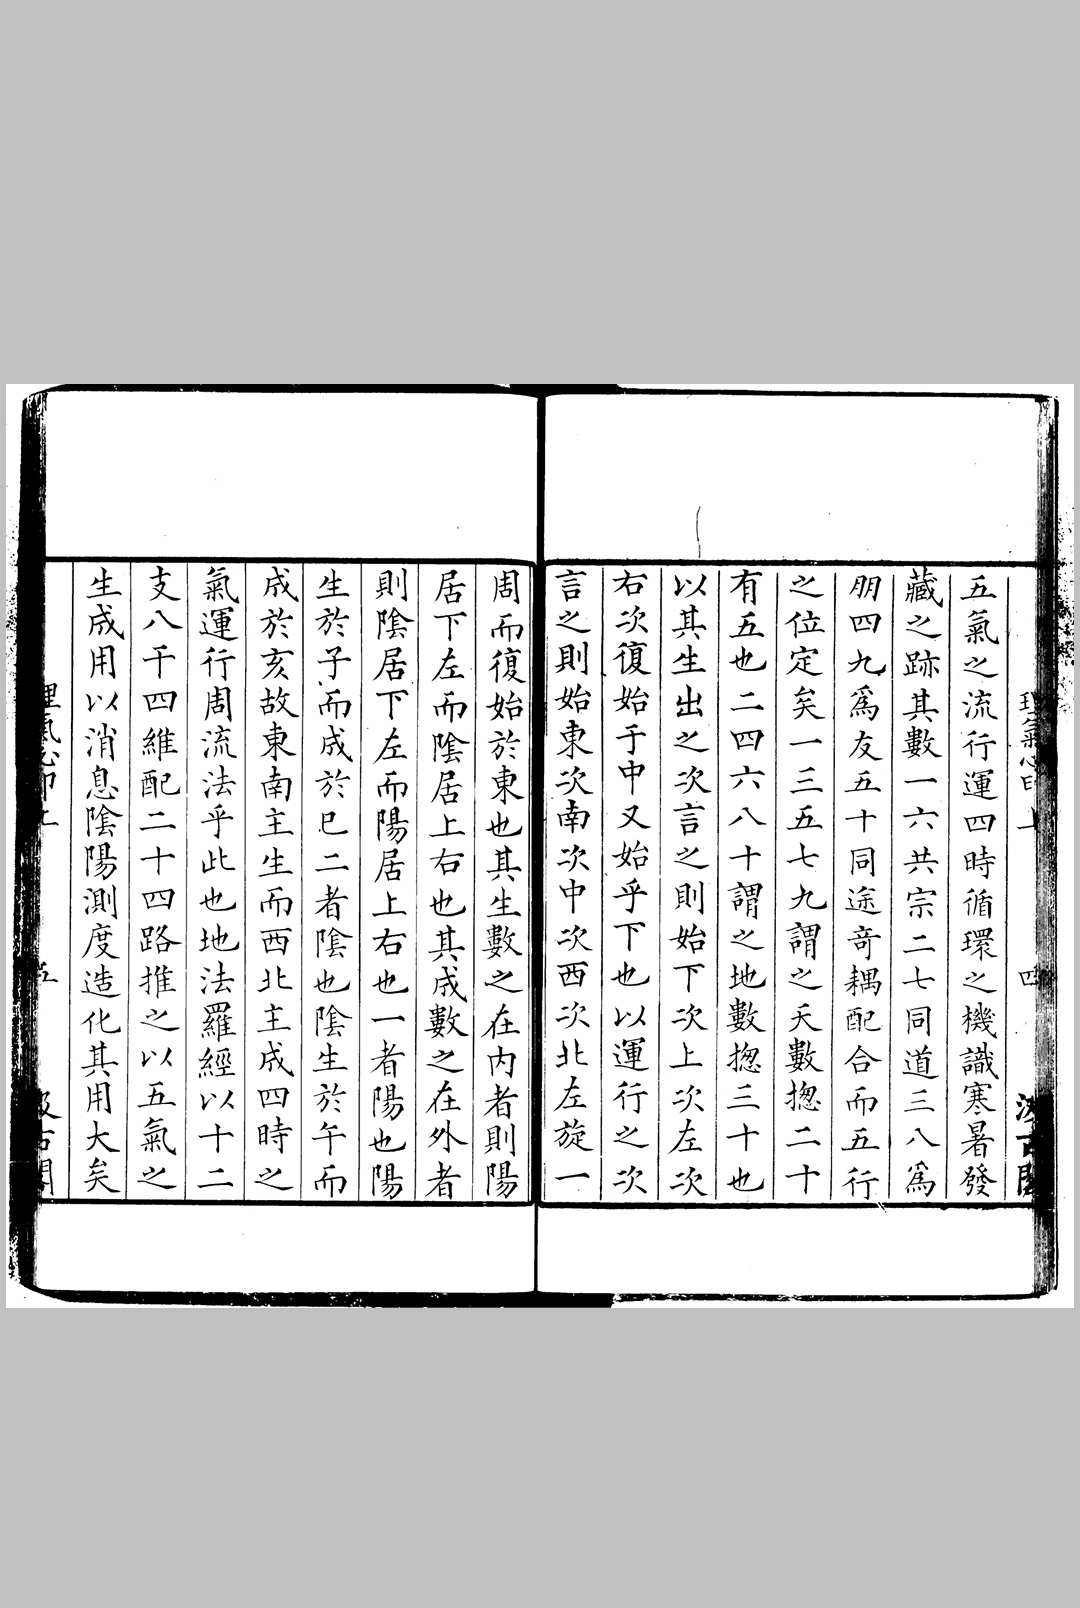 理氣心印上 四 汲古閣
五氣之流行運四時循環之機識寒暑發
藏之跡其數一六共宗二七同道三八爲
朋四九爲友五十同途竒耦配合而五行
之位定矣一三五七九謂之天數揔二十
有五也二四六八十謂之地數揔三十也
以其生出之次言之則始下次上次左次
右次復始于中又始乎下也以運行之次
言之則始東次南次中次西次北左旋一
周而復始於東也其生數之在内者則陽
居下左而隂居上右也其成數之在外者
則隂居下左而陽居上右也一者陽也陽
生於子而成於巳二者隂也隂生於午而
成於亥故東南主生而西北主成四時之
氣運行周流法乎此也地法羅經以十二
支八干四維配二十四路推之以五氣之
生成用以消息隂陽測度造化其用大矣
理氣心印上 五 汲古閣